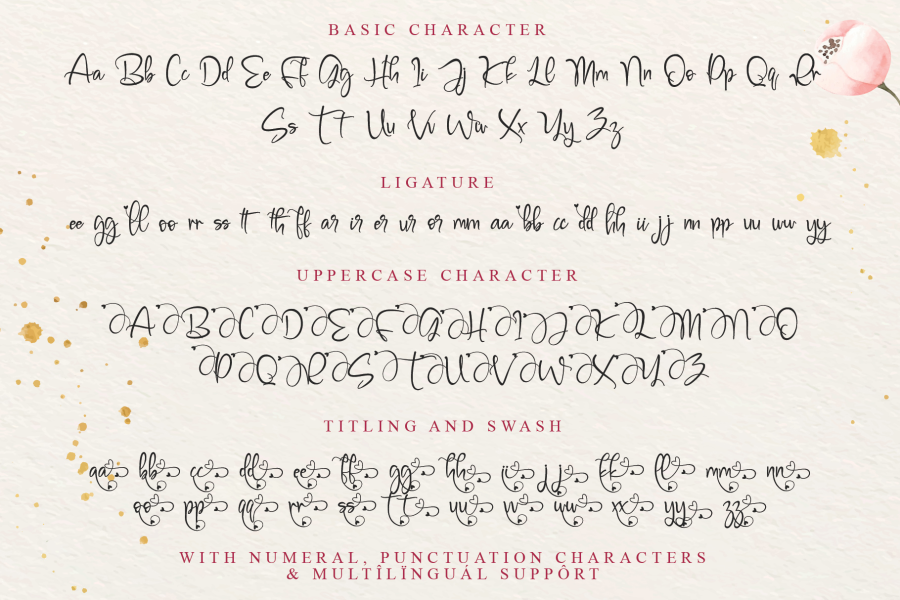 BASIC CHARACTER
Aa Bb Cc Dd Ee Ff Gg Hh Ii Jj Kk Ll Mm Nn Oo Pp Qq Rr
Ss Tt Uu Vv Ww Xx Yy Zz
LIGATURE
ee gg ll oo rr ss tt th ff ar ir er ur or mm aa bb cc dd hh ii jj nn pp uu ww yy
UPPERCASE CHARACTER
A B C D E F G H I J K L M N O
P Q R S T U V W X Y Z
TITLING AND SWASH
aa bb cc dd ee ff gg hh ii jj kk ll mm nn
oo pp qq rr ss tt uu vv ww xx yy zz
WITH NUMERAL, PUNCTUATION CHARACTERS
& MULTÎLÏNGUÁL SUPPÔRT